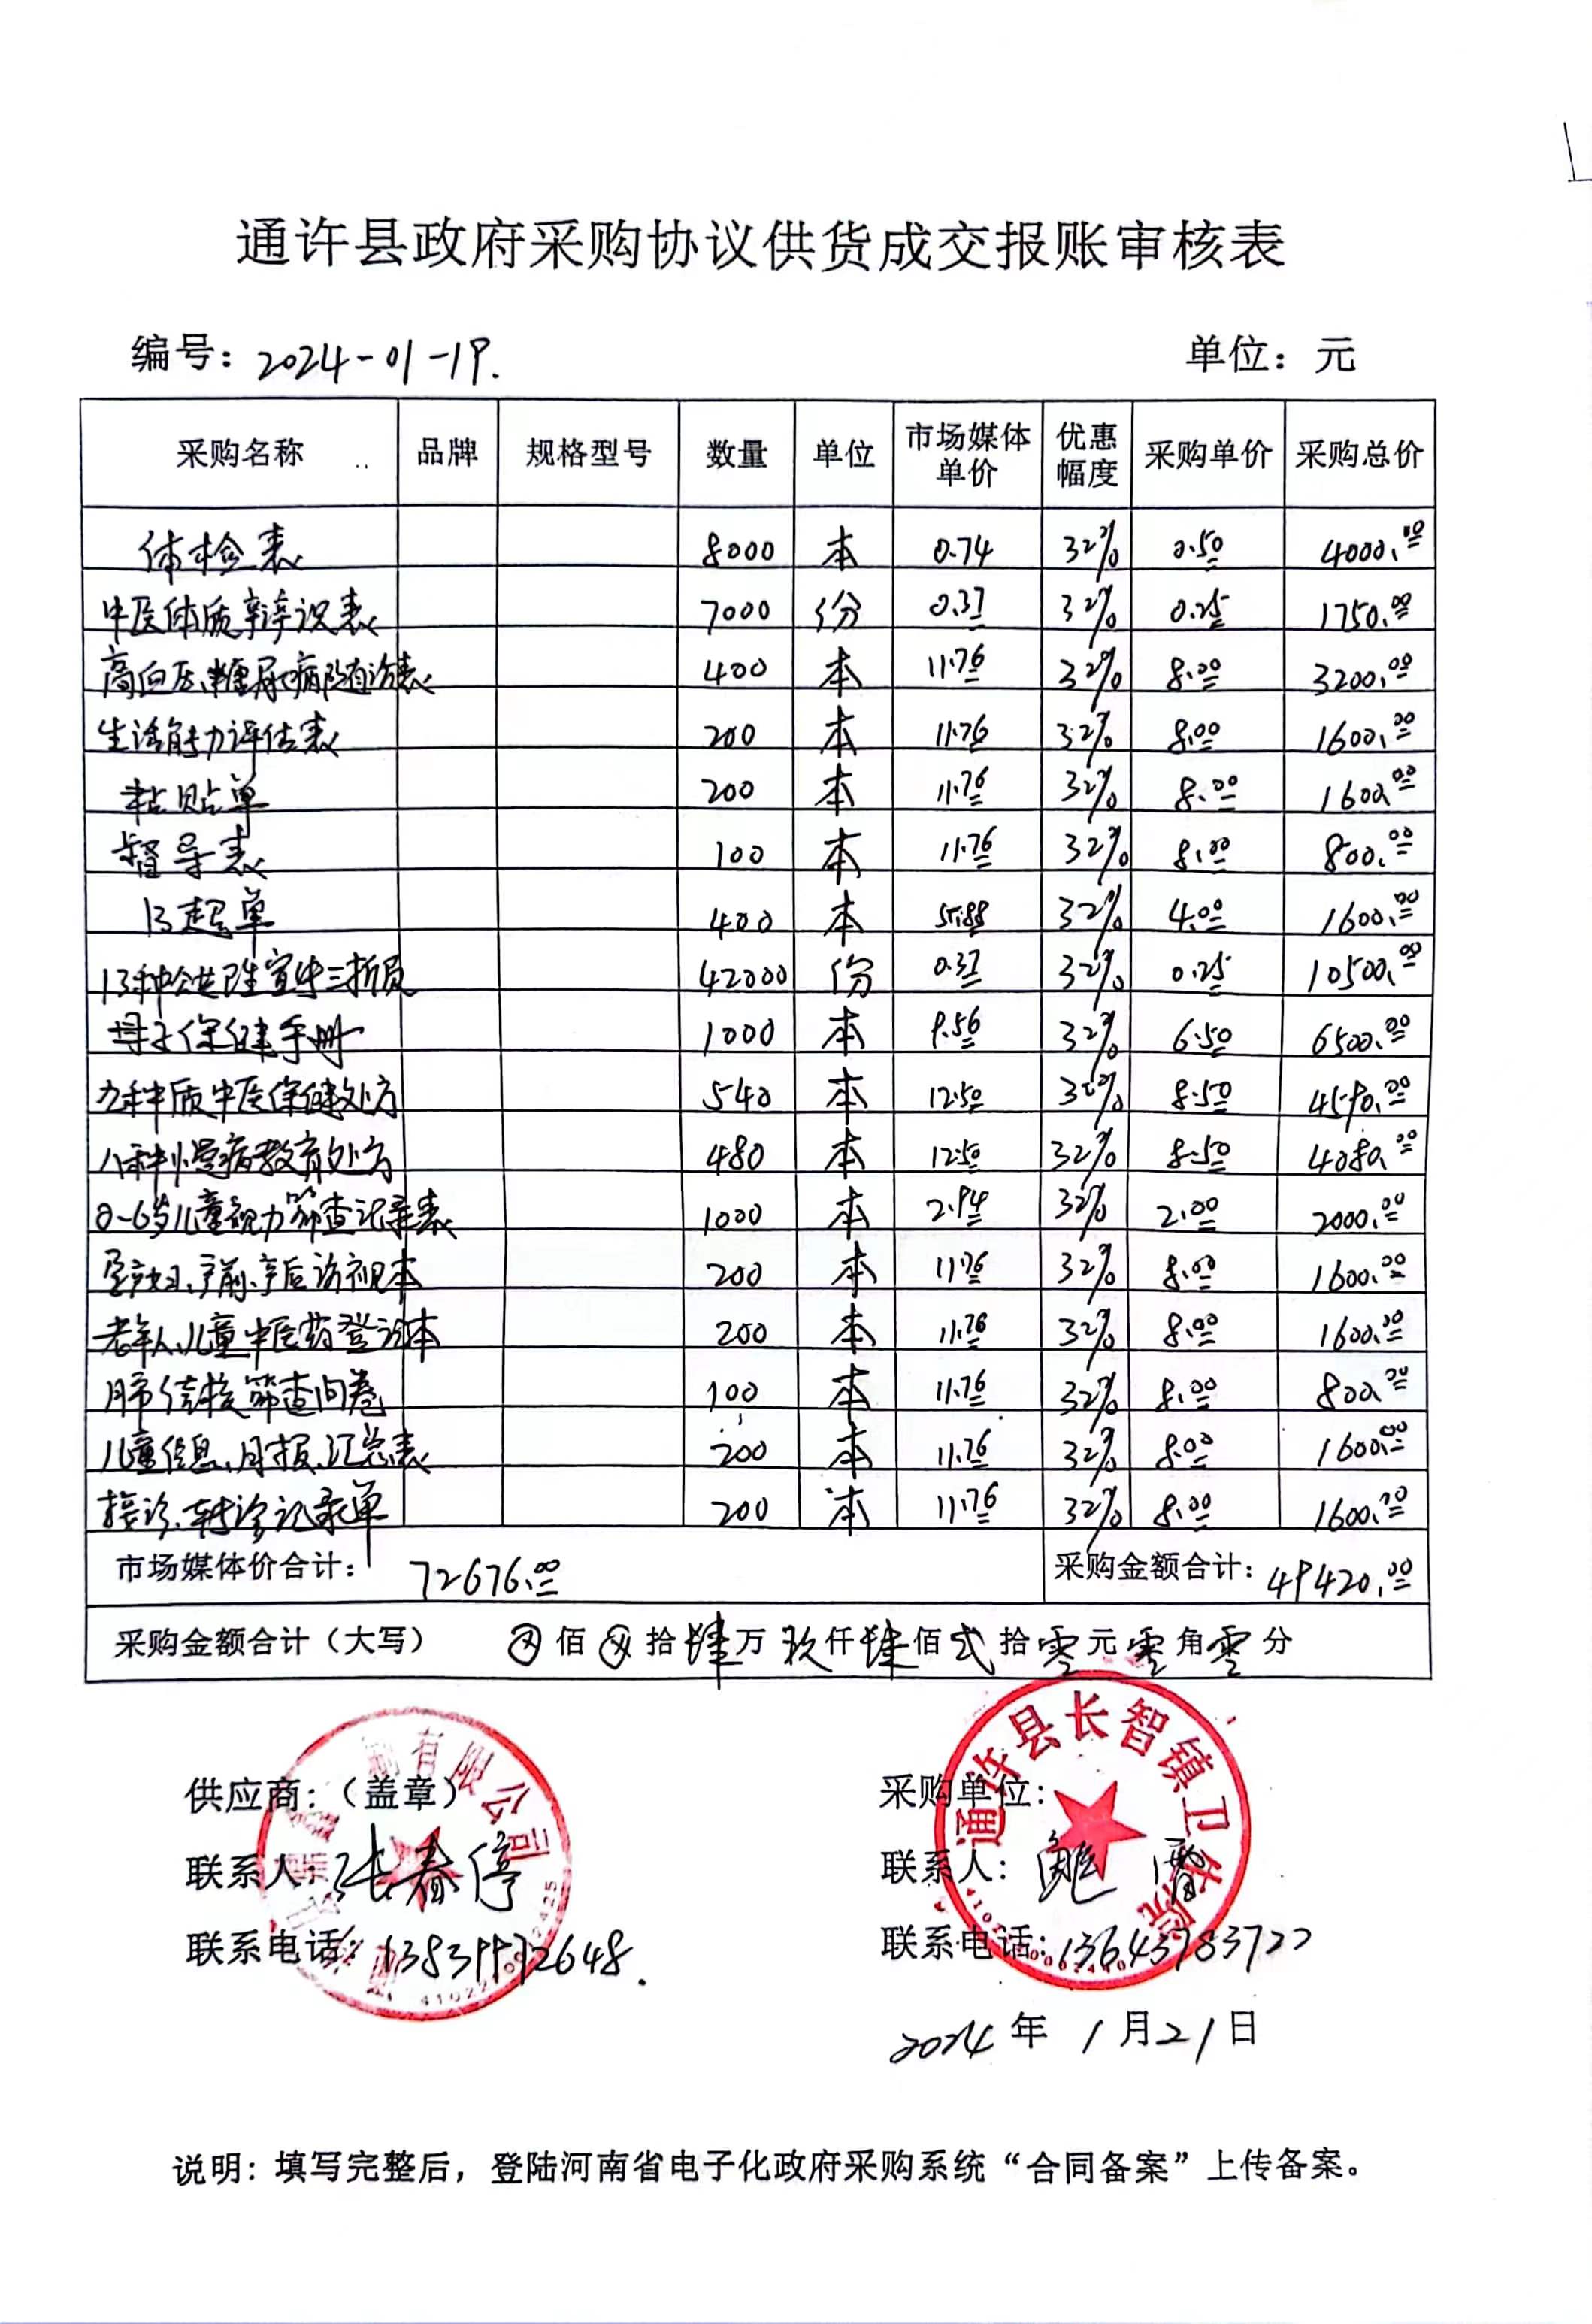 通许县政府采购协议供货成交报账审核表
编号：2024-01-19. 单位：元
采购名称 品牌 规格型号 数量 单位 市场媒体单价 优惠幅度 采购单价 采购总价
体检表 8000 本 0.74 32% 0.50 4000.00
中医体质辩识表 7000 份 0.37 32% 0.25 1750.00
高血压、糖尿病随访表 400 本 11.76 32% 8.00 3200.00
生活能力评估表 200 本 11.76 32% 8.00 1600.00
粘贴单 200 本 11.76 32% 8.00 1600.00
督导表 100 本 11.76 32% 8.00 800.00
B超单 400 本 5.88 32% 4.00 1600.00
13种公共卫生宣传三折页 42000 份 0.37 32% 0.25 10500.00
母子保健手册 1000 本 9.56 32% 6.50 6500.00
九种体质中医保健处方 540 本 12.50 32% 8.50 4590.00
八种慢病教育处方 480 本 12.50 32% 8.50 4080.00
0-6岁儿童视力筛查记录表 1000 本 2.94 32% 2.00 2000.00
孕产妇、产前、产后访视本 200 本 11.76 32% 8.00 1600.00
老年人、儿童中医药登记本 200 本 11.76 32% 8.00 1600.00
肺结核筛查问卷 100 本 11.76 32% 8.00 800.00
儿童信息、月报、汇总表 200 本 11.76 32% 8.00 1600.00
接诊、转诊记录单 200 本 11.76 32% 8.00 1600.00
市场媒体价合计： 72676.00 采购金额合计： 49420.00
采购金额合计（大写） ⊗ 佰 ⊗ 拾 肆 万 玖 仟 肆 佰 贰 拾 零 元 零 角 零 分
供应商：（盖章） 采购单位：
有限公司
通许县长智镇卫生院
联系人：张春停 联系人：
联系电话：13839972648. 联系电话：13643783722
2024 年 1 月 21 日
说明：填写完整后，登陆河南省电子化政府采购系统“合同备案”上传备案。